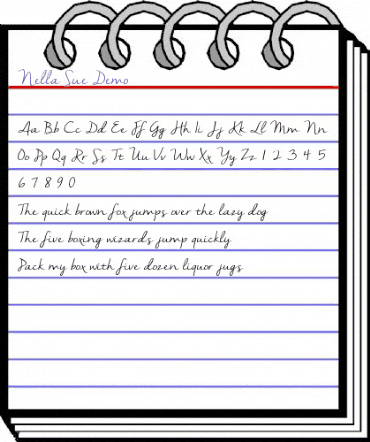 Nella Sue Demo
Aa Bb Cc Dd Ee Ff Gg Hh Ii Jj Kk Ll Mm Nn
Oo Pp Qq Rr Ss Tt Uu Vv Ww Xx Yy Zz 1 2 3 4 5
6 7 8 9 0
The quick brown fox jumps over the lazy dog
The five boxing wizards jump quickly
Pack my box with five dozen liquor jugs